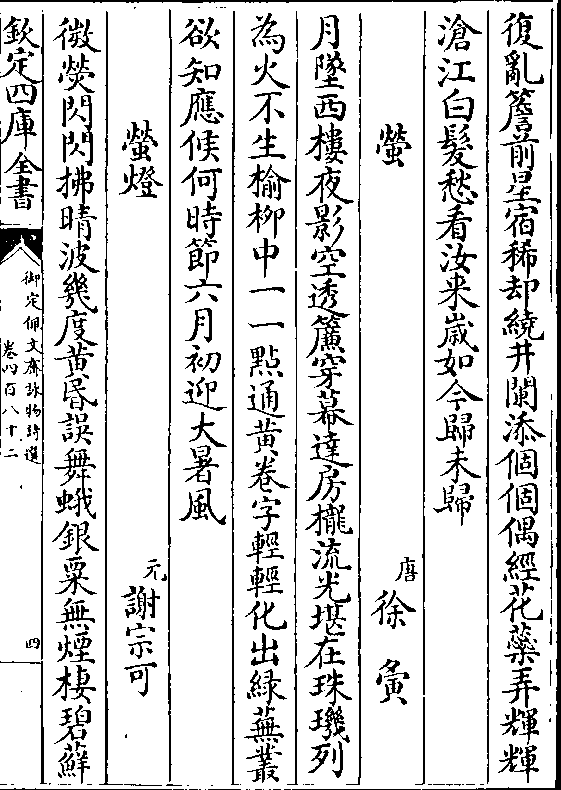 復亂簷前星宿稀却繞井闌添個個偶經花蘂弄輝輝
滄江白髮愁看汝来嵗如今歸未歸
螢
唐
徐夤
月墜西樓夜影空透簾穿幕達房櫳流光堪在珠璣列
為火不生榆栁中一一點通黄卷字輕輕化出緑蕪叢
欲知應候何時節六月初迎大暑風
螢燈
元
謝宗可
微熒閃閃拂晴波幾度黄昏誤舞蛾銀粟無煙棲碧蘚
欽定四庫全書
御定佩文齋詠物詩選
卷四百八十二
四